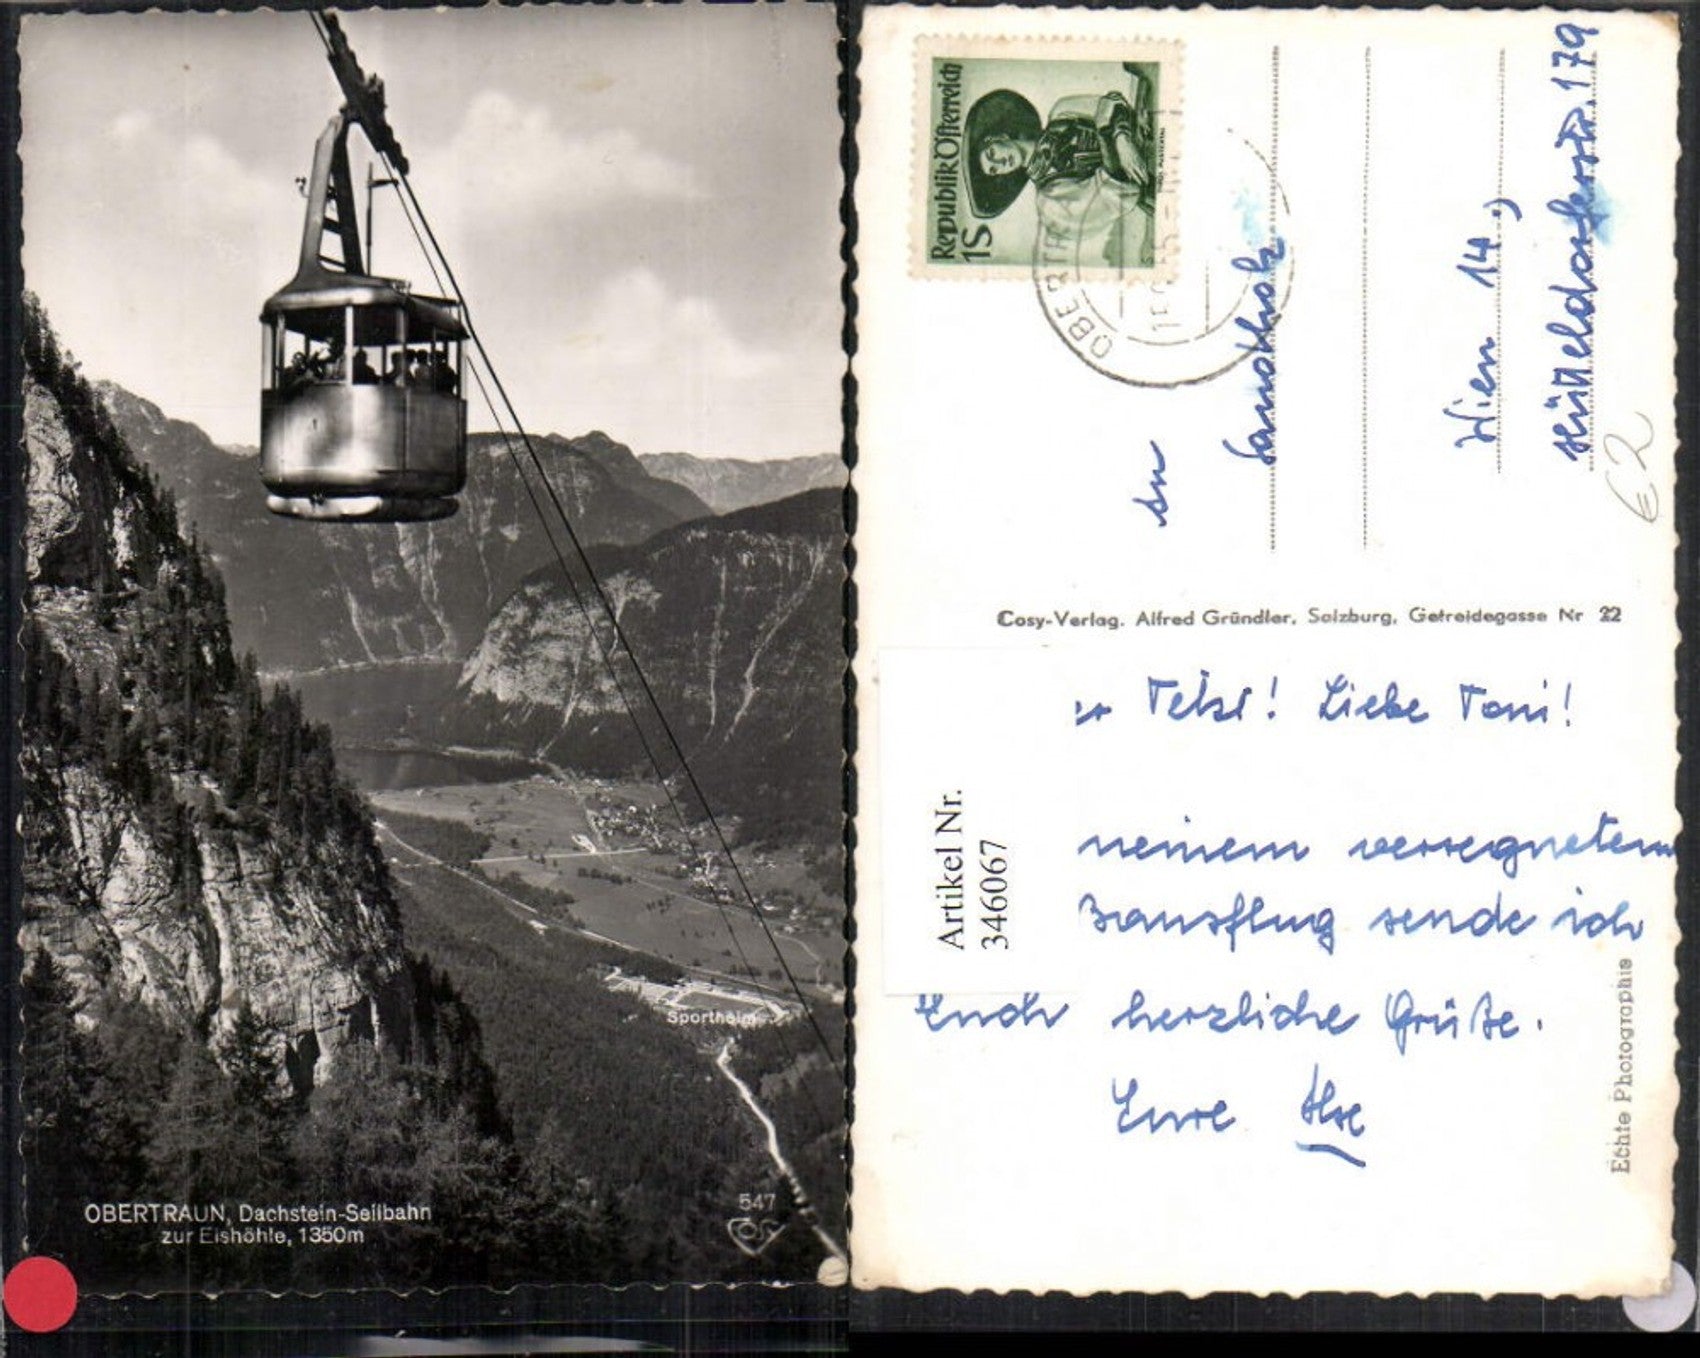 Sportheim
547
COSY
OBERTRAUN, Dachstein-Seilbahn
zur Eishöhle, 1350m
Republik Österreich
1S
OBERTRA
An
Wien 14.,
Hütteldorferstr. 179
€2
Cosy-Verlag. Alfred Gründler, Salzburg, Getreidegasse Nr 22
Liebe Toni!
Artikel Nr.
346067
meinem verregneten
sende ich
Euch herzliche Grüße.
Eure Ilse
Echte Photographie